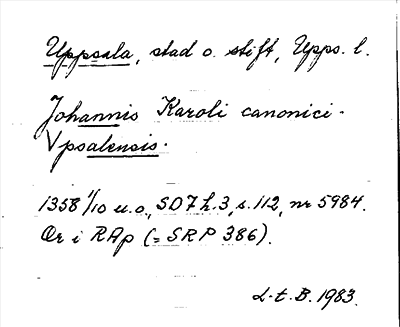 Uppsala, stad o. stift, Upps. l.
Johannis Karoli canonici.
Vpsalensis.
1358 1/10 u.o., SD7 h.3, s.112, nr 5984.
Or i RAp (= SRP 386).
L.t.B. 1983.